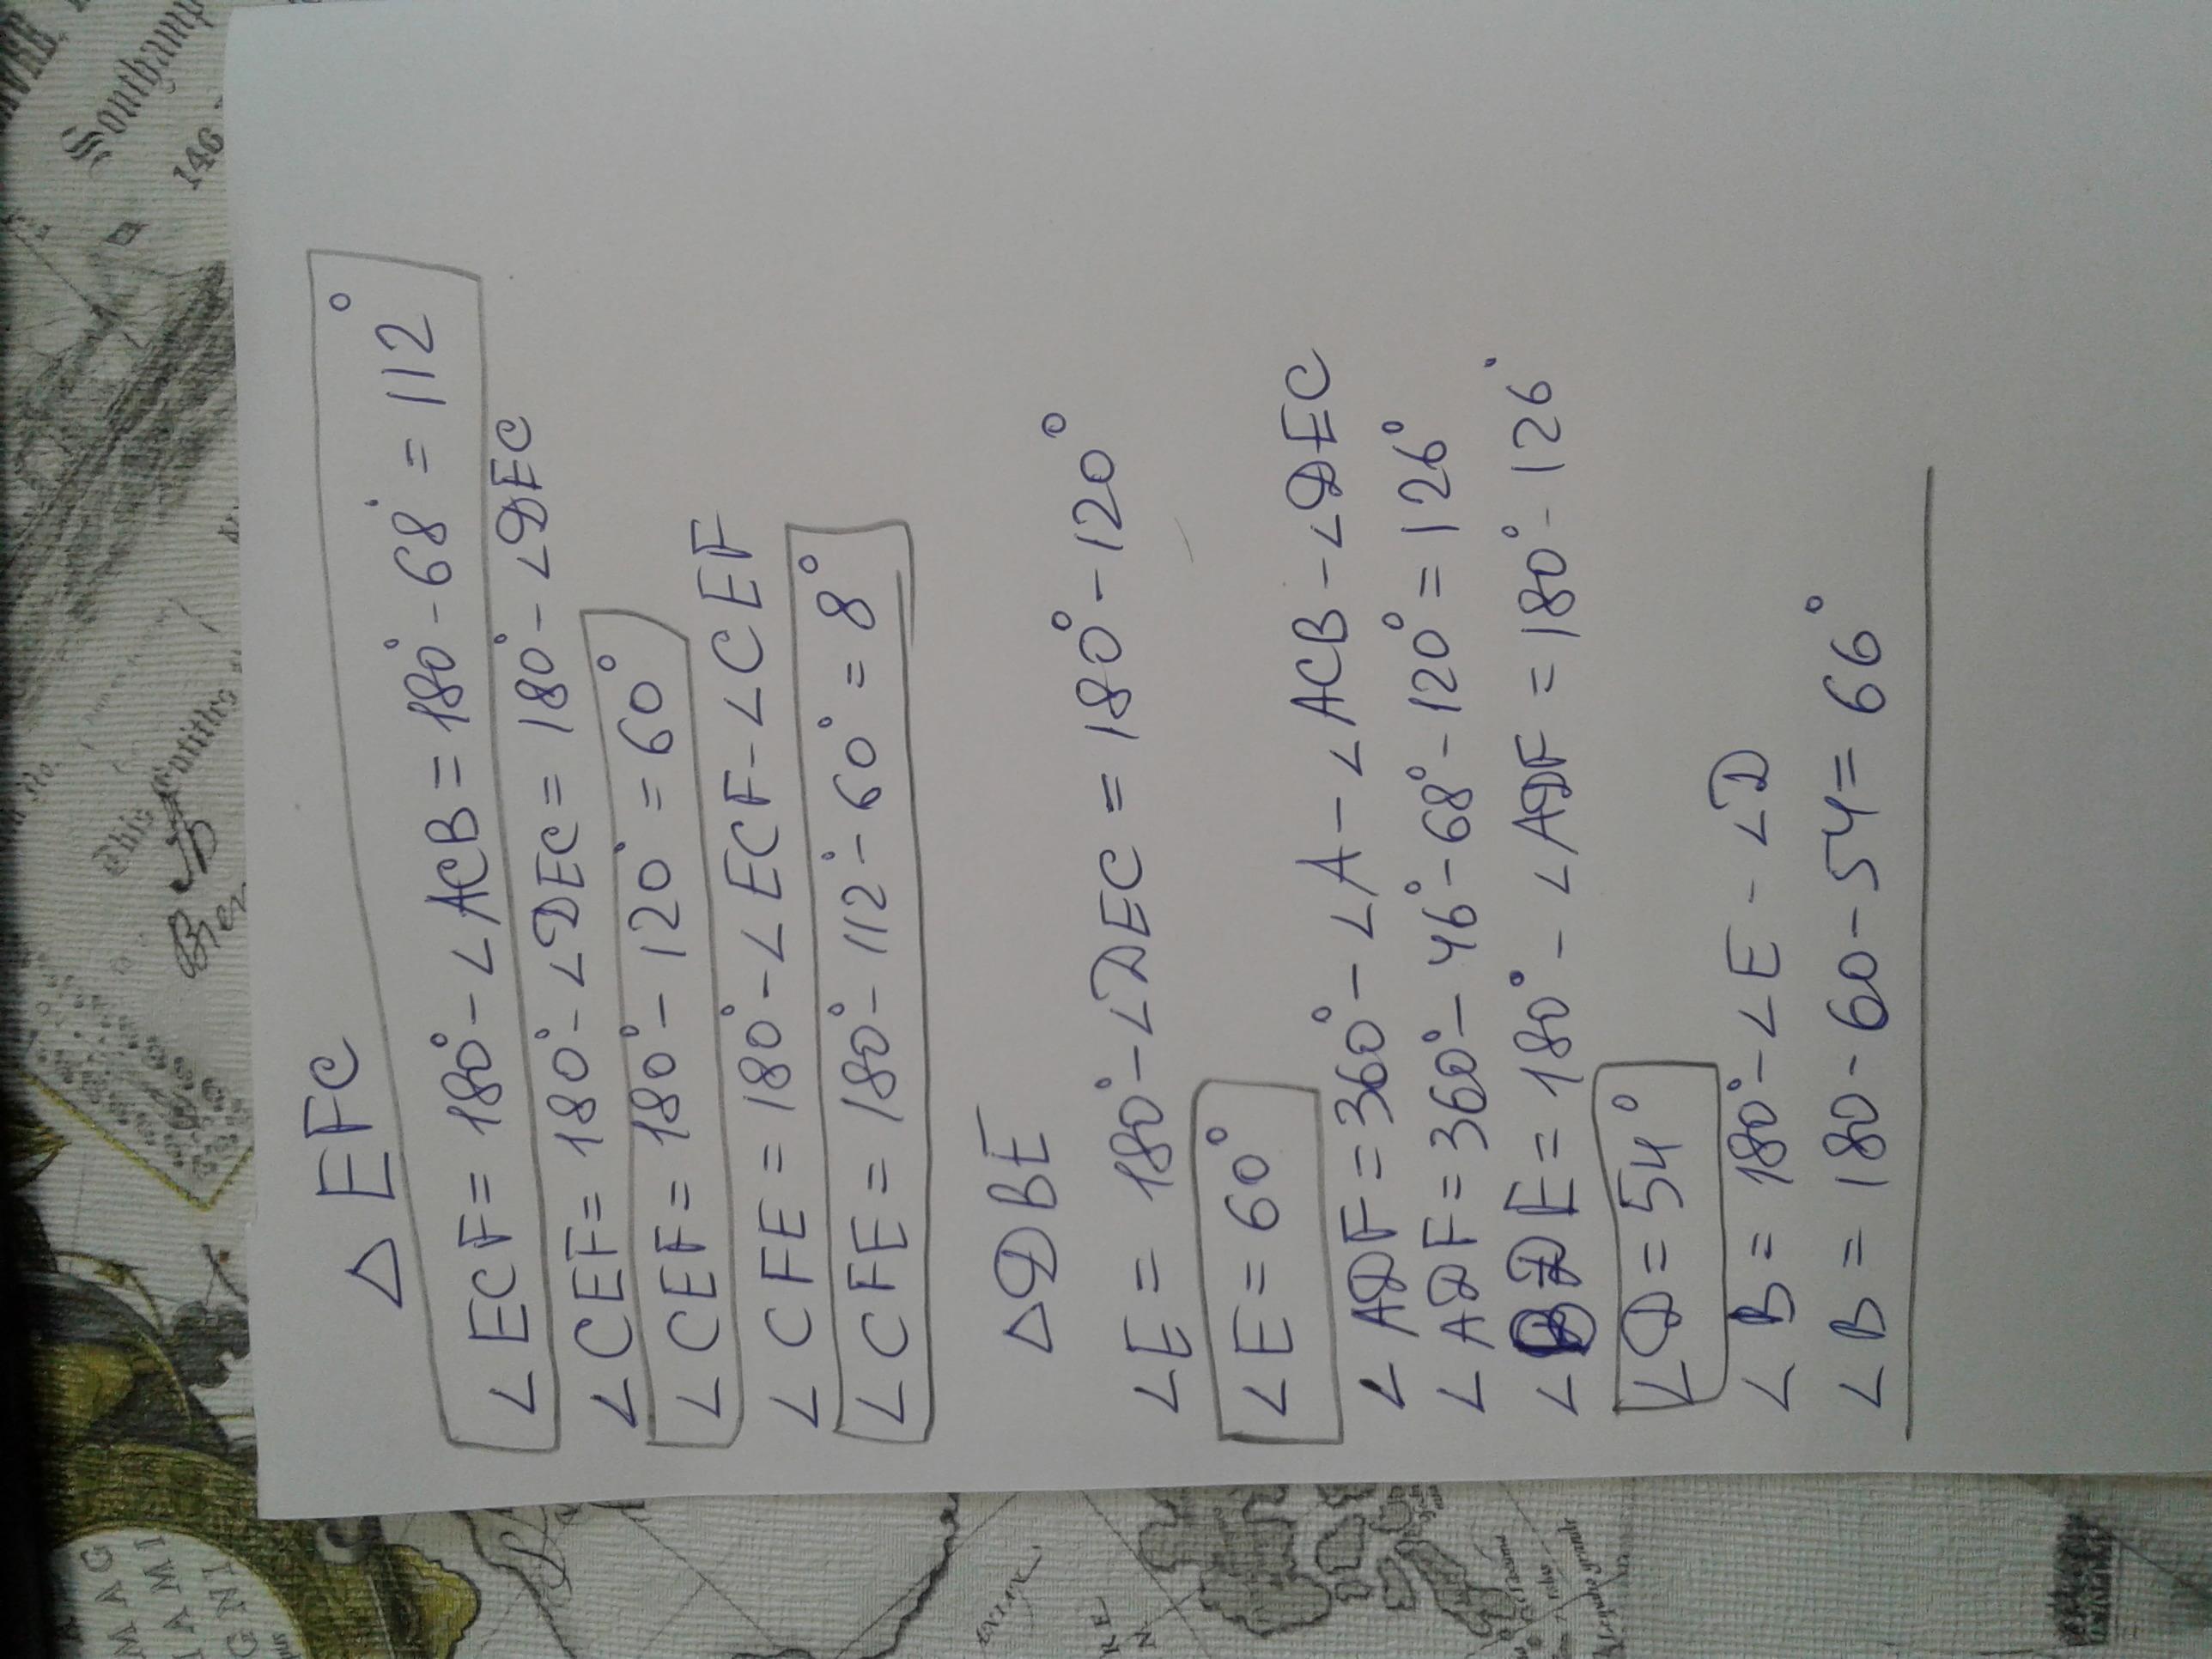 △ EFC
∠ ECF = 180° - ∠ ACB = 180° - 68° = 112°
∠ CEF = 180° - ∠ DEC = 180° - ∠ DEC
∠ CEF = 180° - 120° = 60°
∠ CFE = 180° - ∠ ECF - ∠ CEF
∠ CFE = 180° - 112° - 60° = 8°
△ DBE
∠ E = 180° - ∠ DEC = 180° - 120°
∠ E = 60°
∠ ADF = 360° - ∠ A - ∠ ACB - ∠ DEC
∠ ADF = 360° - 46° - 68° - 120° = 126°
∠ BDE = 180° - ∠ ADF = 180° - 126°
∠ D = 54°
∠ B = 180° - ∠ E - ∠ D
∠ B = 180 - 60 - 54 = 66°
Southamp
146
MAG
IAMI
GNI